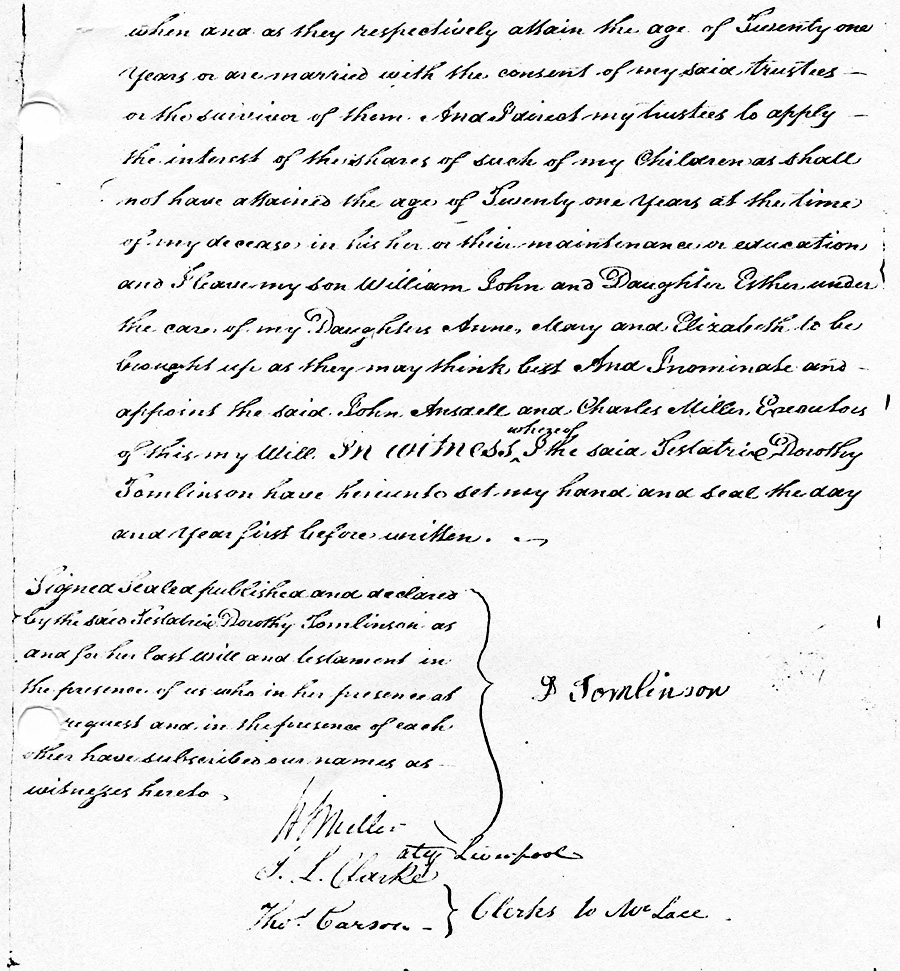 when and as they respectively attain the age of Twenty one
Years or are married with the consent of my said trustees —
or the survivor of them. And I direct my trustees to apply —
the interest of the shares of such of my Children as shall
not have attained the age of Twenty one Years at the time
of my decease in his her or their maintenance or education
and I leave my son William John and Daughter Esther under
the care of my Daughters Anne, Mary and Elizabeth to be
brought up as they may think best And I nominate and -
appoint the said John Ansdell and Charles Miller Executors
whereof
of this my Will. In witness I the said Testatrix Dorothy
Tomlinson have hereunto set my hand and seal the day
and Year first before written.
Signed Sealed published and declared
by the said Testatrix Dorothy Tomlinson as
and for her last Will and testament in
the presence of us who in her presence at
D Tomlinson
request and in the presence of each
other have subscribed our names as
witnesses hereto,
Miller
aty Liverpool
L. Clarke
Thos. Carson - Clerks to Mr Lace